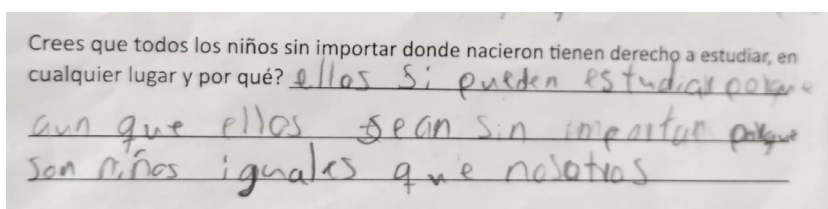 Crees que todos los niños sin importar donde nacieron tienen derecho a estudiar, en
cualquier lugar y por qué? ellos si pueden estudiar porque
aun que ellos sean sin importar porque
son niños iguales que nosotros